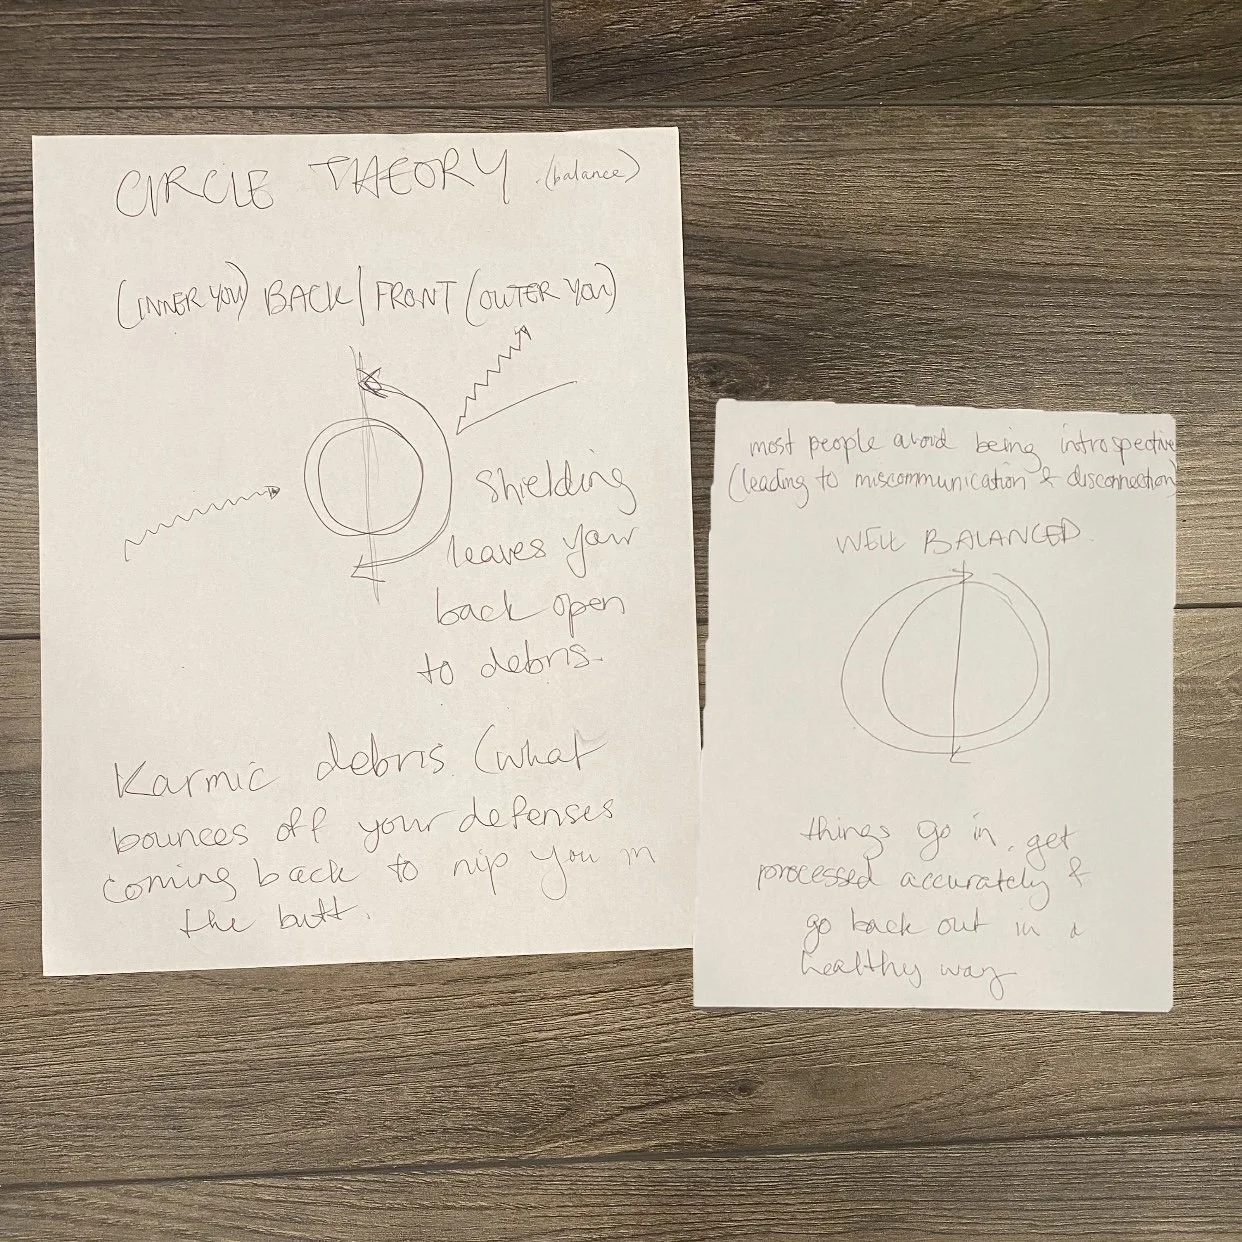 CIRCLE THEORY (balance)
(INNER YOU) BACK | FRONT (OUTER YOU)
shielding
leaves your
back open
to debris.
Karmic debris (what
bounces off your defenses
coming back to nip you in
the butt.
most people avoid being introspective
(leading to miscommunication & disconnection)
WELL BALANCED.
things go in, get
processed accurately &
go back out in a
healthy way